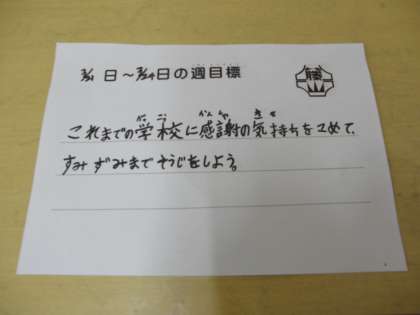 3/21日～3/24日の週目標
藤
これまでの学校に感謝の気持ちをこめて、
すみずみまでそうじをしよう。